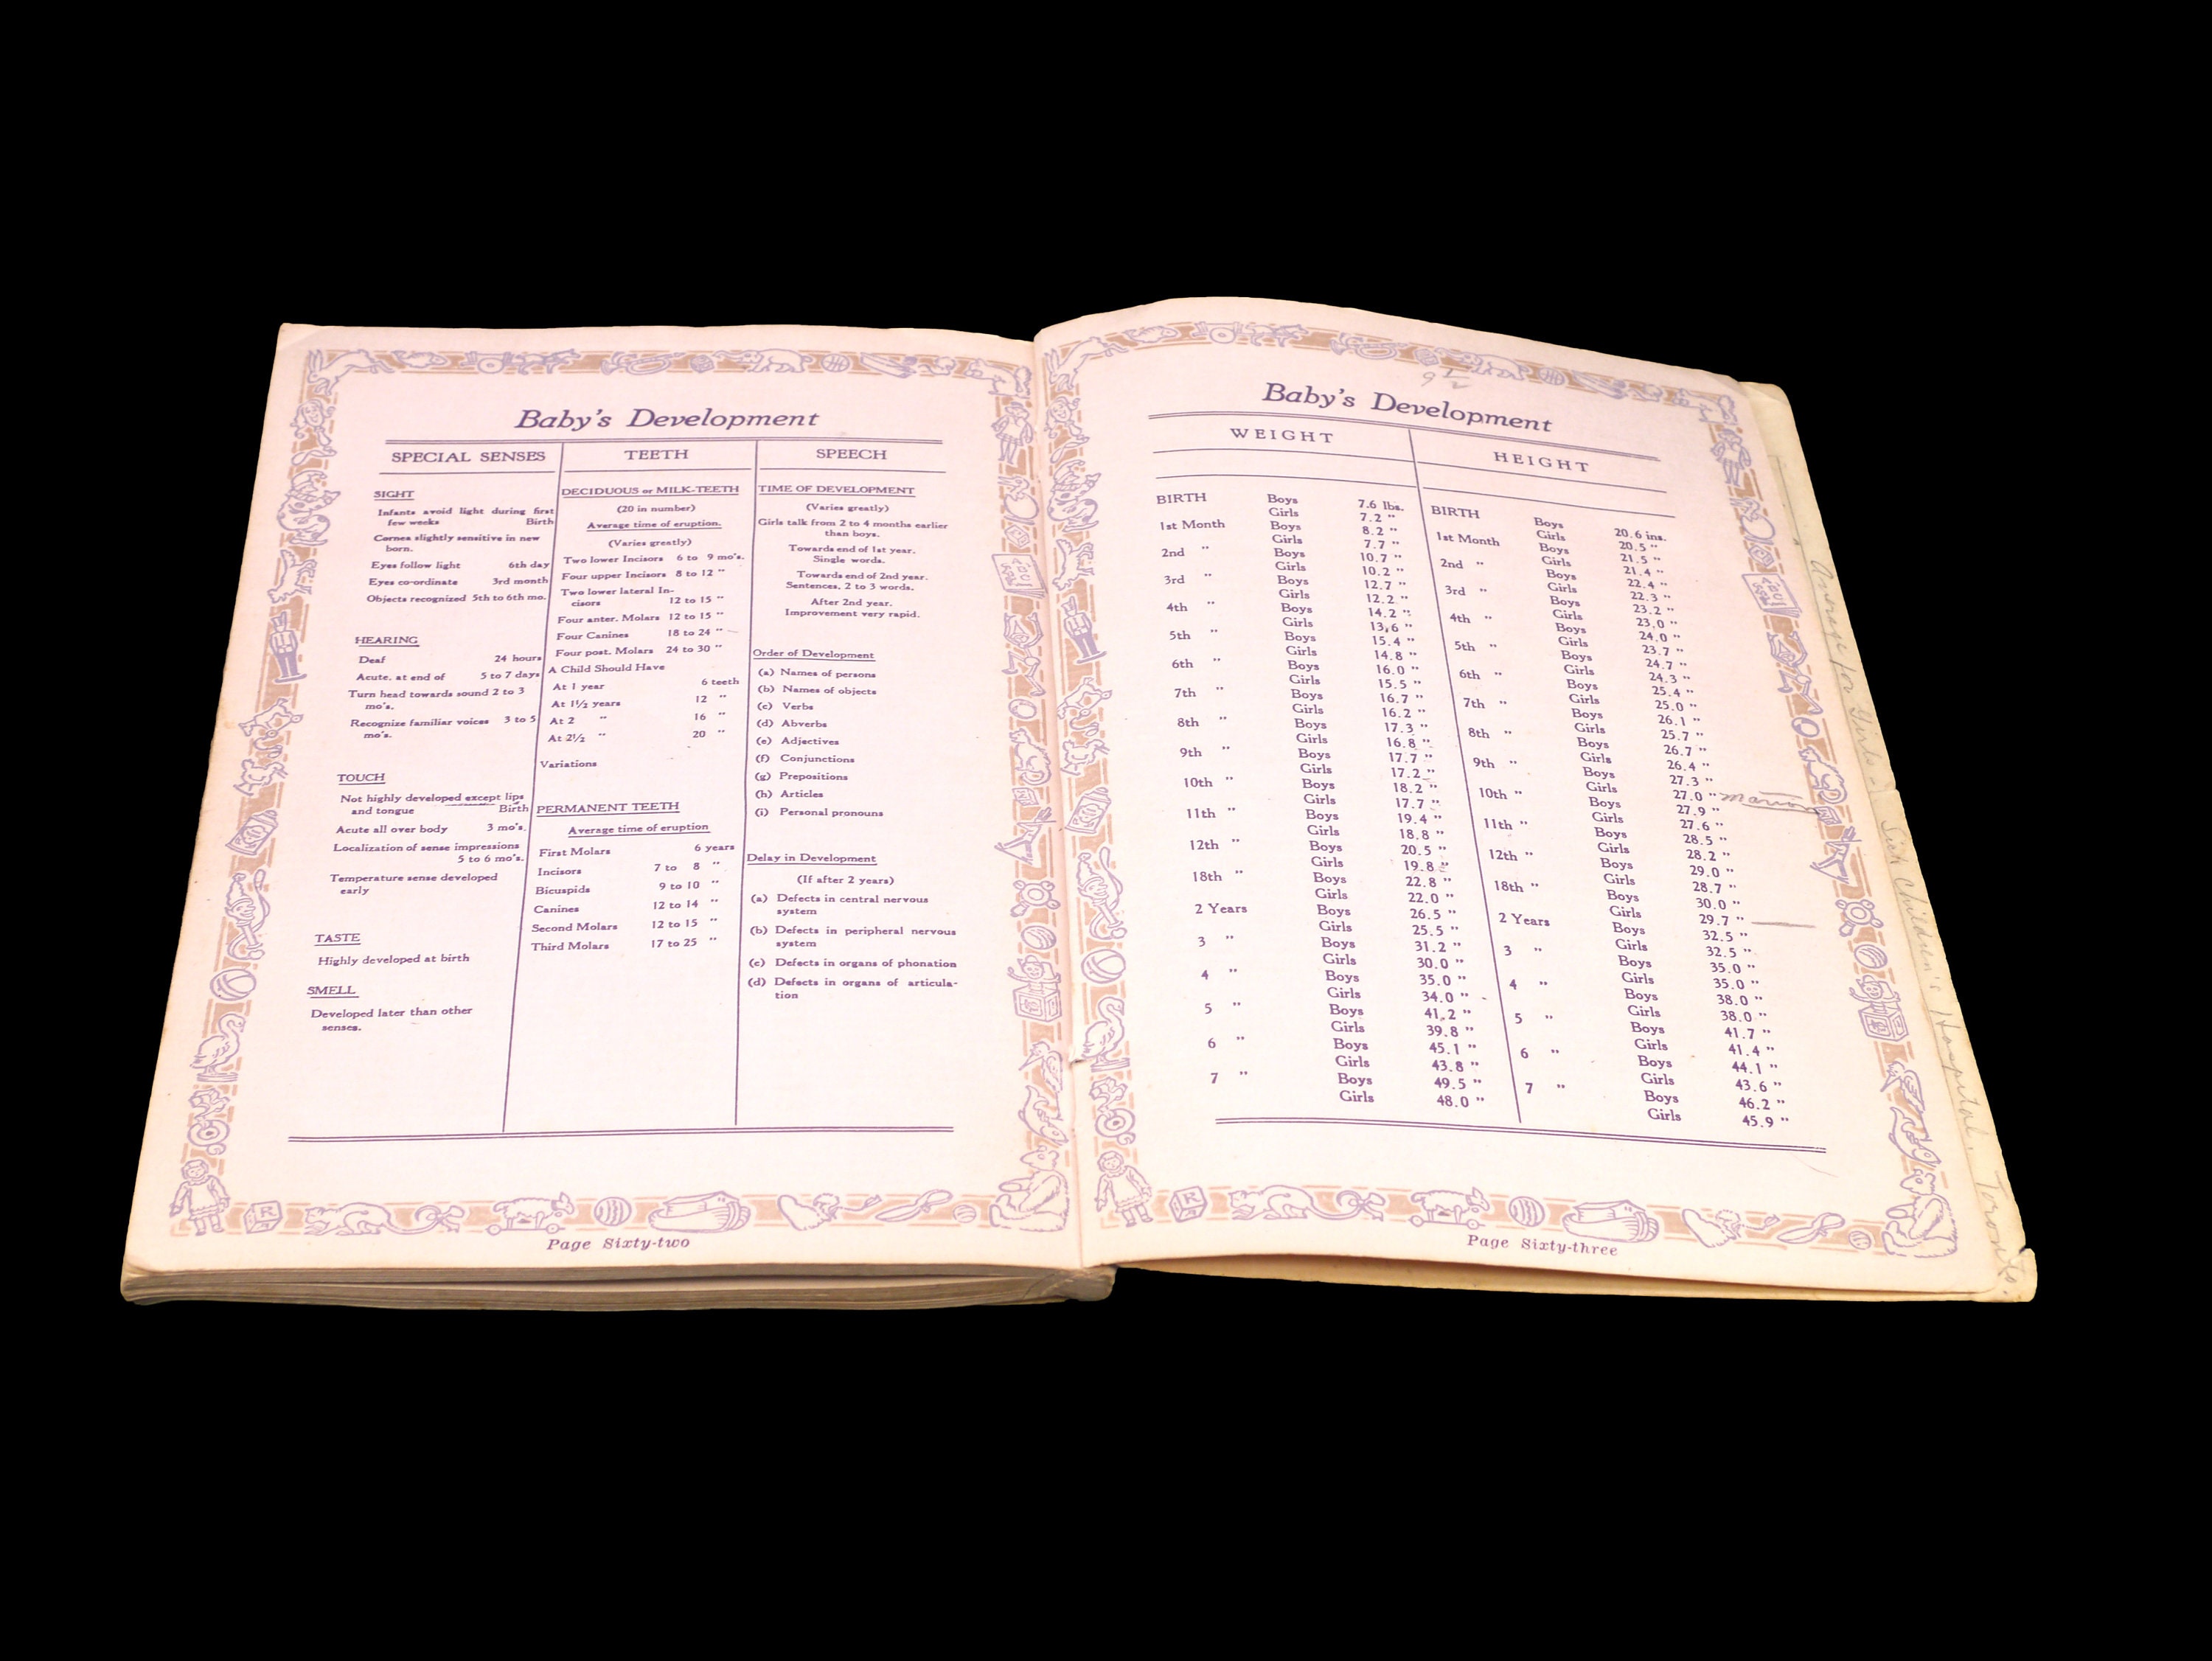 Baby's Development
SPECIAL SENSES
SIGHT
Infants avoid light during first
few weeks Birth
Cornea slightly sensitive in new
born.
Eyes follow light 6th day
Eyes co-ordinate 3rd month
Objects recognized 5th to 6th mo.
HEARING
Deaf 24 hours
Acute, at end of 5 to 7 days
Turn head towards sound 2 to 3
mo's.
Recognize familiar voices 3 to 5
mo's.
TOUCH
Not highly developed except lips
and tongue Birth
Acute all over body 3 mo's.
Localization of sense impressions
5 to 6 mo's.
Temperature sense developed
early
TASTE
Highly developed at birth
SMELL
Developed later than other
senses.
TEETH
DECIDUOUS or MILK-TEETH
(20 in number)
Average time of eruption.
(Varies greatly)
Two lower Incisors 6 to 9 mo's.
Four upper Incisors 8 to 12 "
Two lower lateral In-
cisors 12 to 15 "
Four anter. Molars 12 to 15 "
Four Canines 18 to 24 "
Four post. Molars 24 to 30 "
A Child Should Have
At 1 year 6 teeth
At 1½ years 12 "
At 2 " 16 "
At 2½ " 20 "
Variations
PERMANENT TEETH
Average time of eruption
First Molars 6 years
Incisors 7 to 8 "
Bicuspids 9 to 10 "
Canines 12 to 14 "
Second Molars 12 to 15 "
Third Molars 17 to 25 "
SPEECH
TIME OF DEVELOPMENT
(Varies greatly)
Girls talk from 2 to 4 months earlier
than boys.
Towards end of 1st year.
Single words.
Towards end of 2nd year.
Sentences, 2 to 3 words.
After 2nd year.
Improvement very rapid.
Order of Development
(a) Names of persons
(b) Names of objects
(c) Verbs
(d) Abverbs
(e) Adjectives
(f) Conjunctions
(g) Prepositions
(h) Articles
(i) Personal pronouns
Delay in Development
(If after 2 years)
(a) Defects in central nervous
system
(b) Defects in peripheral nervous
system
(c) Defects in organs of phonation
(d) Defects in organs of articula-
tion
Page Sixty-two
9½
Baby's Development
WEIGHT
BIRTH Boys 7.6 lbs.
Girls 7.2 "
1st Month Boys 8.2 "
Girls 7.7 "
2nd " Boys 10.7 "
Girls 10.2 "
3rd " Boys 12.7 "
Girls 12.2 "
4th " Boys 14.2 "
Girls 13,6 "
5th " Boys 15.4 "
Girls 14.8 "
6th " Boys 16.0 "
Girls 15.5 "
7th " Boys 16.7 "
Girls 16.2 "
8th " Boys 17.3 "
Girls 16.8 "
9th " Boys 17.7 "
Girls 17.2 "
10th " Boys 18.2 "
Girls 17.7 "
11th " Boys 19.4 "
Girls 18.8 "
12th " Boys 20.5 "
Girls 19.8 "
18th " Boys 22.8 "
Girls 22.0 "
2 Years Boys 26.5 "
Girls 25.5 "
3 " Boys 31.2 "
Girls 30.0 "
4 " Boys 35.0 "
Girls 34.0 "
5 " Boys 41.2 "
Girls 39.8 "
6 " Boys 45.1 "
Girls 43.8 "
7 " Boys 49.5 "
Girls 48.0 "
HEIGHT
BIRTH Boys 20.6 ins.
Girls 20.5 "
1st Month Boys 21.5 "
Girls 21.4 "
2nd " Boys 22.4 "
Girls 22.3 "
3rd " Boys 23.2 "
Girls 23.0 "
4th " Boys 24.0 "
Girls 23.7 "
5th " Boys 24.7 "
Girls 24.3 "
6th " Boys 25.4 "
Girls 25.0 "
7th " Boys 26.1 "
Girls 25.7 "
8th " Boys 26.7 "
Girls 26.4 "
9th " Boys 27.3 "
Girls 27.0 " Marion
10th " Boys 27.9 "
Girls 27.6 "
11th " Boys 28.5 "
Girls 28.2 "
12th " Boys 29.0 "
Girls 28.7 "
18th " Boys 30.0 "
Girls 29.7 "
2 Years Boys 32.5 "
Girls 32.5 "
3 " Boys 35.0 "
Girls 35.0 "
4 " Boys 38.0 "
Girls 38.0 "
5 " Boys 41.7 "
Girls 41.4 "
6 " Boys 44.1 "
Girls 43.6 "
7 " Boys 46.2 "
Girls 45.9 "
Page Sixty-three
Average for Girls - Sick Children's Hospital. Toronto.